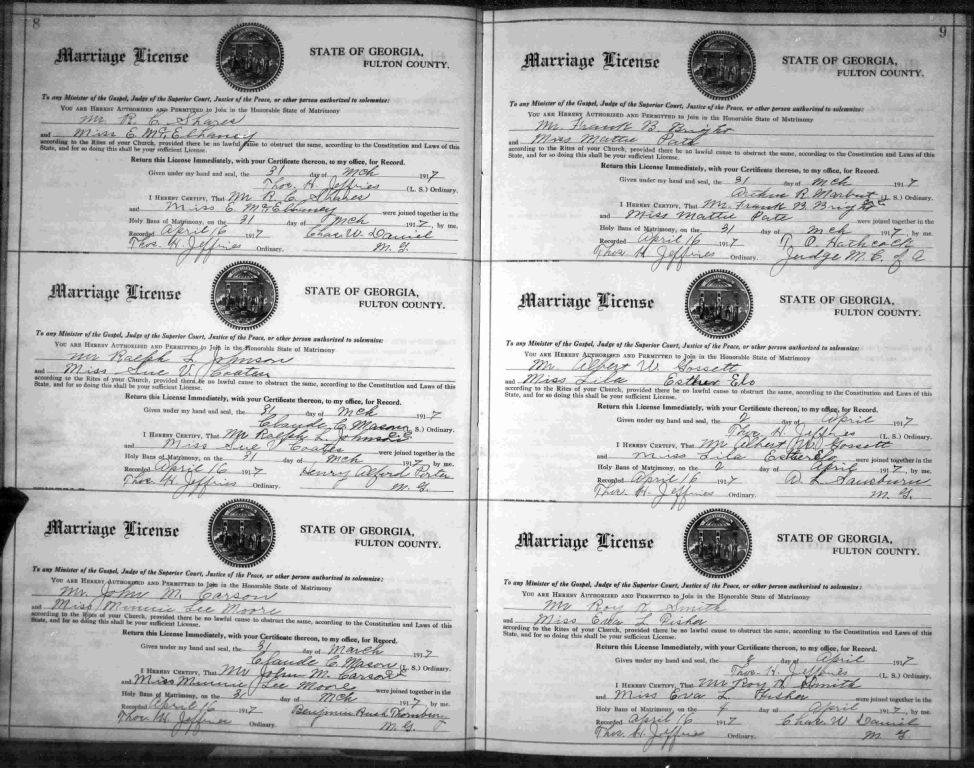 8
Marriage License
STATE OF GEORGIA,
FULTON COUNTY.
To any Minister of the Gospel, Judge of the Superior Court, Justice of the Peace, or other person authorized to solemnize:
YOU ARE HEREBY AUTHORIZED AND PERMITTED to Join in the Honorable State of Matrimony
Mr R. C. Shares
and Miss E. McElhaney
according to the Rites of your Church, provided there be no lawful cause to obstruct the same, according to the Constitution and Laws of this
State, and for so doing this shall be your sufficient License.
Return this License Immediately, with your Certificate thereon, to my office, for Record.
Given under my hand and seal, the 31 day of Mch 1917
Thos. H. Jeffries (L. S.) Ordinary.
I HEREBY CERTIFY, That Mr R. C. Shares
and Miss E. McElhaney were joined together in the
Holy Bans of Matrimony, on the 31 day of Mch 1917, by me.
Recorded April 16 1917 Chas. W. Daniel
Thos. H. Jeffries Ordinary. M. G.
Marriage License
STATE OF GEORGIA,
FULTON COUNTY.
To any Minister of the Gospel, Judge of the Superior Court, Justice of the Peace, or other person authorized to solemnize:
YOU ARE HEREBY AUTHORIZED AND PERMITTED to Join in the Honorable State of Matrimony
Mr Ralph L. Johnson
and Miss Sue V. Coates
according to the Rites of your Church, provided there be no lawful cause to obstruct the same, according to the Constitution and Laws of this
State, and for so doing this shall be your sufficient License.
Return this License Immediately, with your Certificate thereon, to my office, for Record.
Given under my hand and seal, the 31 day of Mch 1917
Claude C. Mason S.) Ordinary.
I HEREBY CERTIFY, That Mr Ralph L. Johnson
and Miss Sue V Coates were joined together in the
Holy Bans of Matrimony, on the 31 day of Mch 1917 by me.
Recorded April 16 1917 Henry Alford Porter
Thos. H. Jeffries Ordinary. M. G.
Marriage License
STATE OF GEORGIA,
FULTON COUNTY.
To any Minister of the Gospel, Judge of the Superior Court, Justice of the Peace, or other person authorized to solemnize:
YOU ARE HEREBY AUTHORIZED AND PERMITTED to Join in the Honorable State of Matrimony
Mr. John M. Carson
and Miss Minnie Lee Moore
according to the Rites of your Church, provided there be no lawful cause to obstruct the same, according to the Constitution and Laws of this
State, and for so doing this shall be your sufficient License.
Return this License Immediately, with your Certificate thereon, to my office, for Record.
Given under my hand and seal, the 31 day of March 1917
Claude C. Mason (L. S.) Ordinary.
I HEREBY CERTIFY, That Mr John M. Carson
and Miss Minnie Lee Moore were joined together in the
Holy Bans of Matrimony, on the 31 day of Mch 1917, by me.
Recorded April 16 1917 Benjamin Rush
Thos. H. Jeffries Ordinary. M. G.
9
Marriage License
STATE OF GEORGIA,
FULTON COUNTY.
To any Minister of the Gospel, Judge of the Superior Court, Justice of the Peace, or other person authorized to solemnize:
YOU ARE HEREBY AUTHORIZED AND PERMITTED to Join in the Honorable State of Matrimony
Mr. Frank B. Bright
and Miss Mattie Pate
according to the Rites of your Church, provided there be no lawful cause to obstruct the same, according to the Constitution and Laws of this
State, and for so doing this shall be your sufficient License.
Return this License Immediately, with your Certificate thereon, to my office, for Record.
Given under my hand and seal, the 31 day of Mch 1917
Arthur R. Marbut S.) Ordinary.
I HEREBY CERTIFY, That Mr. Frank B. Bright
and Miss Mattie Pate were joined together in the
Holy Bans of Matrimony, on the 31 day of Mch 1917, by me.
Recorded April 16 1917 Hathcock
Thos. H. Jeffries Ordinary. Judge M. C. of A
Marriage License
STATE OF GEORGIA,
FULTON COUNTY.
To any Minister of the Gospel, Judge of the Superior Court, Justice of the Peace, or other person authorized to solemnize:
YOU ARE HEREBY AUTHORIZED AND PERMITTED to Join in the Honorable State of Matrimony
Mr. Albert W. Gossett
and Miss Lila Esther Elo
according to the Rites of your Church, provided there be no lawful cause to obstruct the same, according to the Constitution and Laws of this
State, and for so doing this shall be your sufficient License.
Return this License Immediately, with your Certificate thereon, to my office, for Record.
Given under my hand and seal, the 2 day of April 1917
Thos. H. Jeffries (L. S.) Ordinary.
I HEREBY CERTIFY, That Mr Albert W. Gossett
and Miss Lila Esther Elo were joined together in the
Holy Bans of Matrimony, on the 2 day of April 1917, by me.
Recorded April 16 1917
Thos. H. Jeffries Ordinary. M. G.
Marriage License
STATE OF GEORGIA,
FULTON COUNTY.
To any Minister of the Gospel, Judge of the Superior Court, Justice of the Peace, or other person authorized to solemnize:
YOU ARE HEREBY AUTHORIZED AND PERMITTED to Join in the Honorable State of Matrimony
Mr Roy Smith
and Miss Eva L Fisher
according to the Rites of your Church, provided there be no lawful cause to obstruct the same, according to the Constitution and Laws of this
State, and for so doing this shall be your sufficient License.
Return this License Immediately, with your Certificate thereon, to my office, for Record.
Given under my hand and seal, the day of April 1917
Thos. H. Jeffries (L. S.) Ordinary.
I HEREBY CERTIFY, That Mr Roy Smith
and Miss Eva L Fisher were joined together in the
Holy Bans of Matrimony, on the day of April 1917, by me.
Recorded April 16 1917 Chas. W Daniel
Thos. H. Jeffries Ordinary. M G.